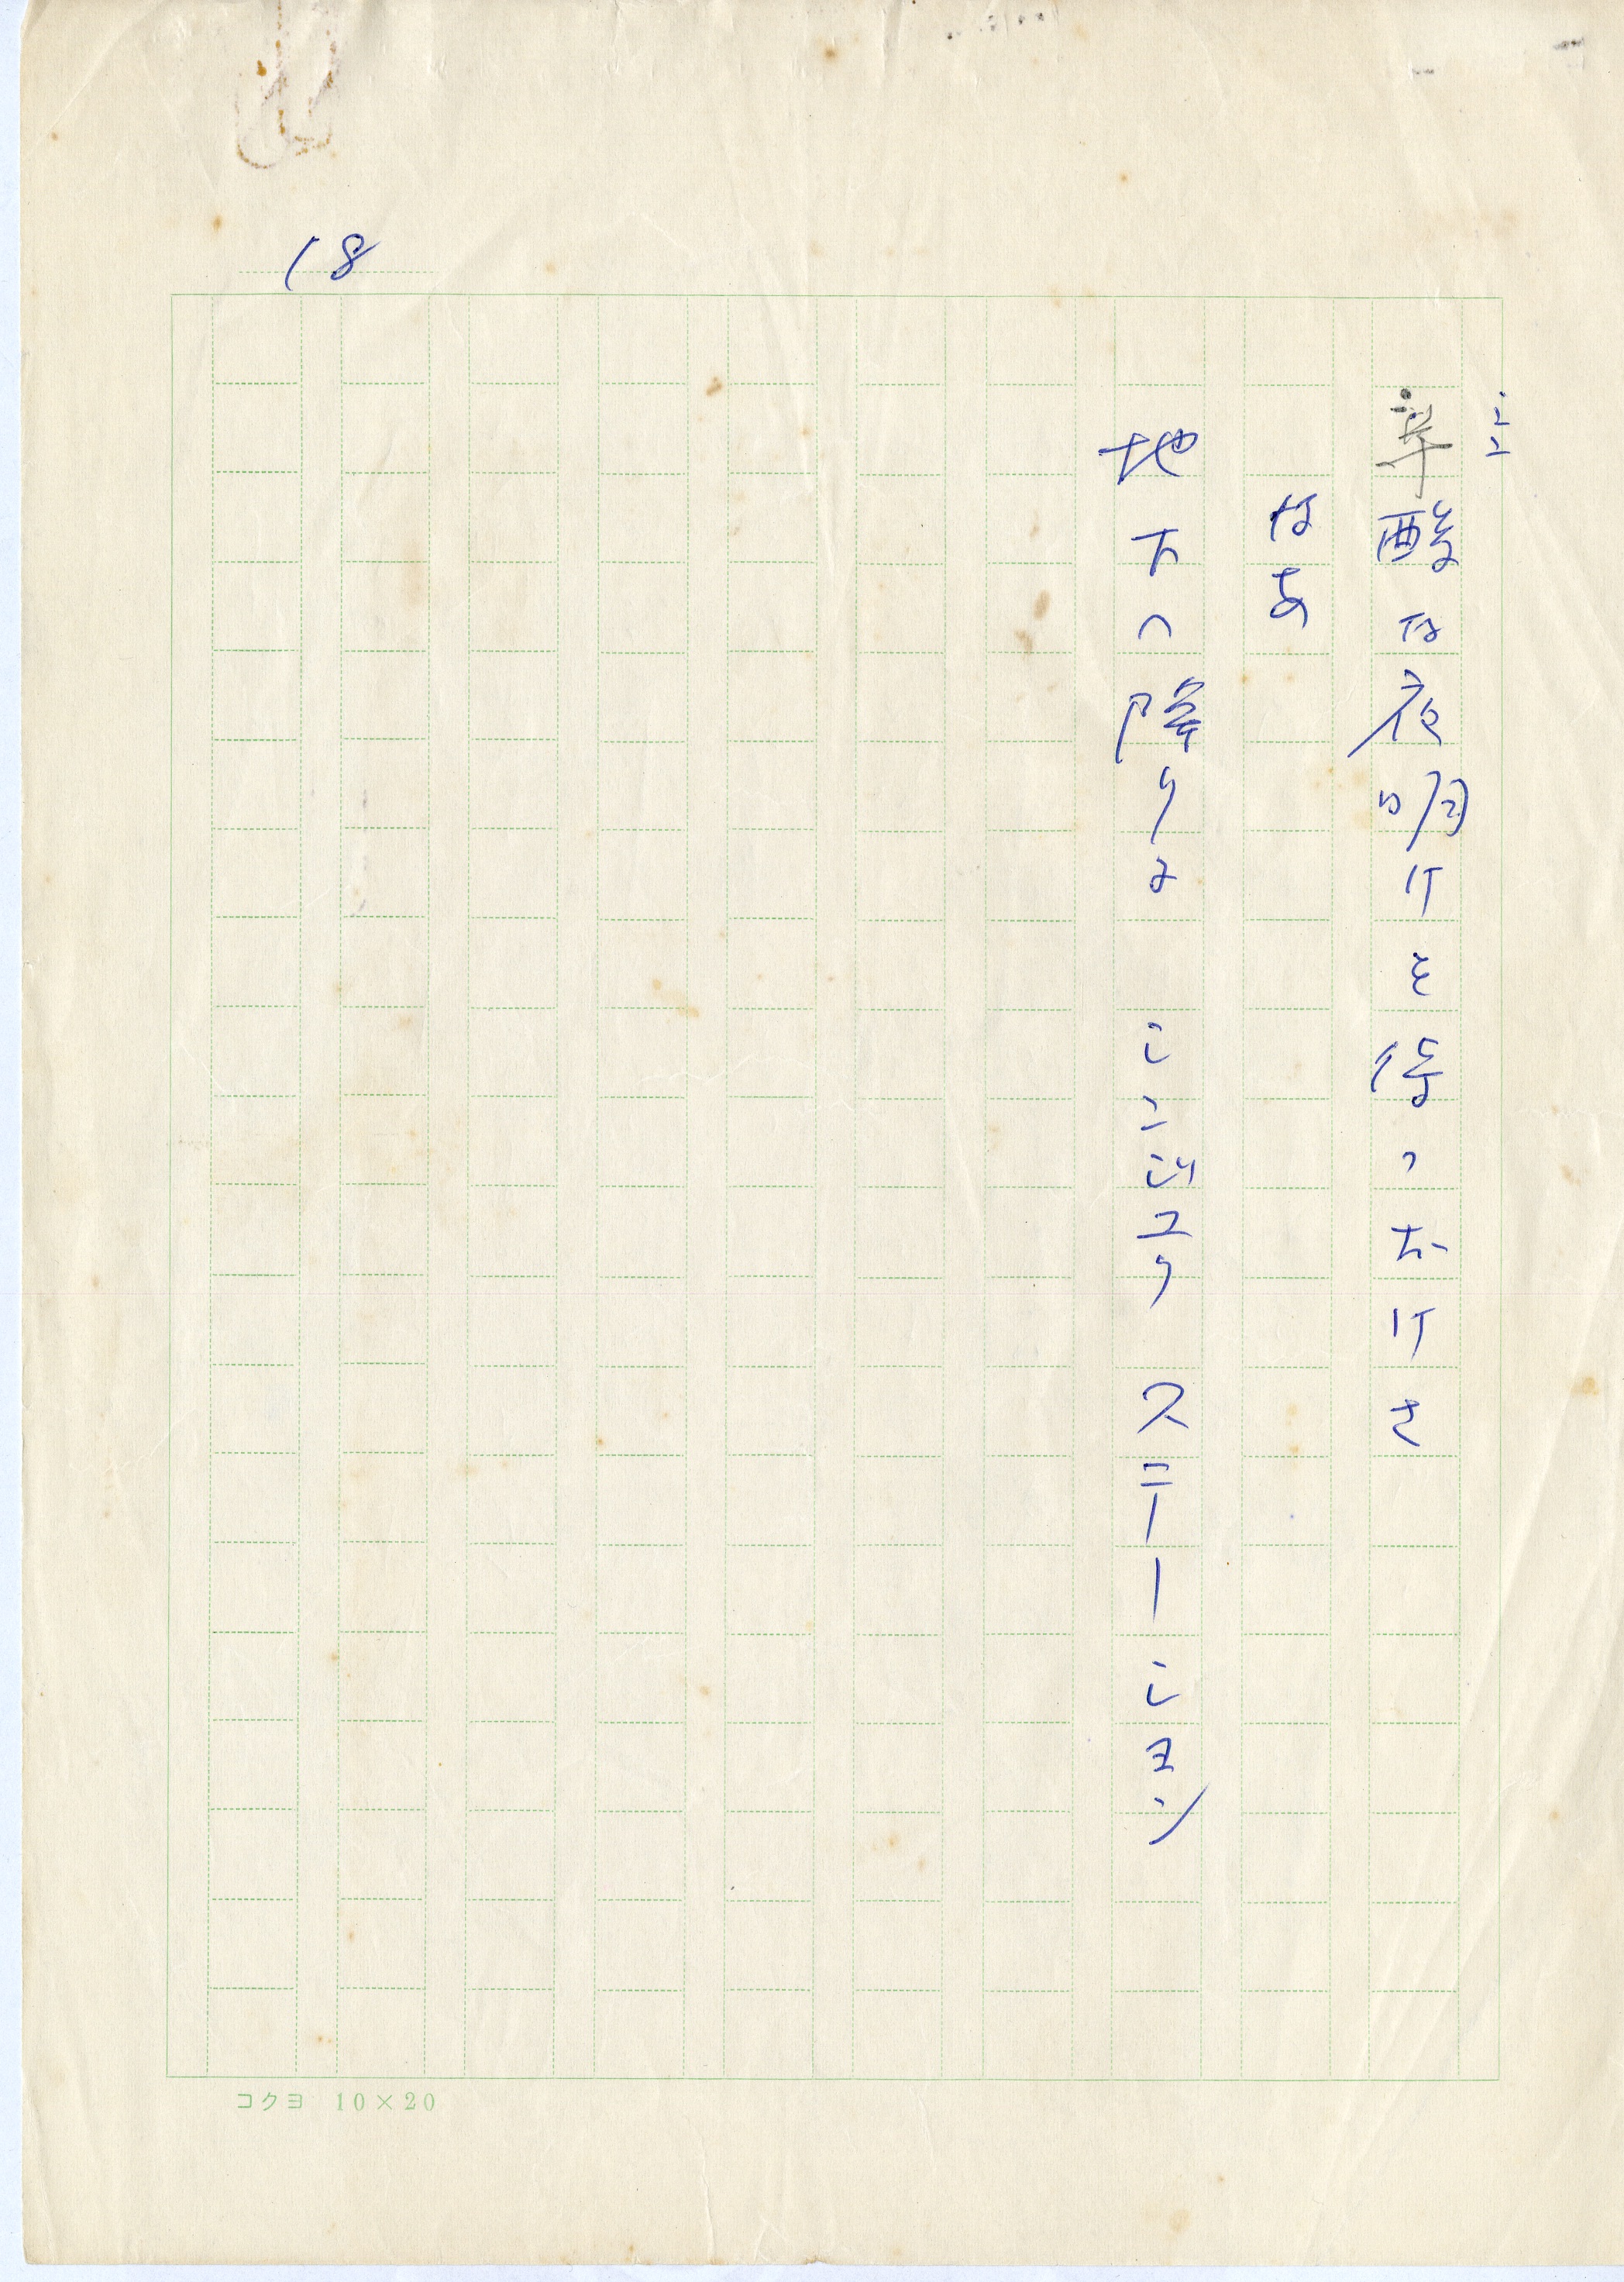 18
辛酸な夜明けを待つおけさ
なあ
地下へ降りよ　シンジュク　ステーション
コクヨ 10×20